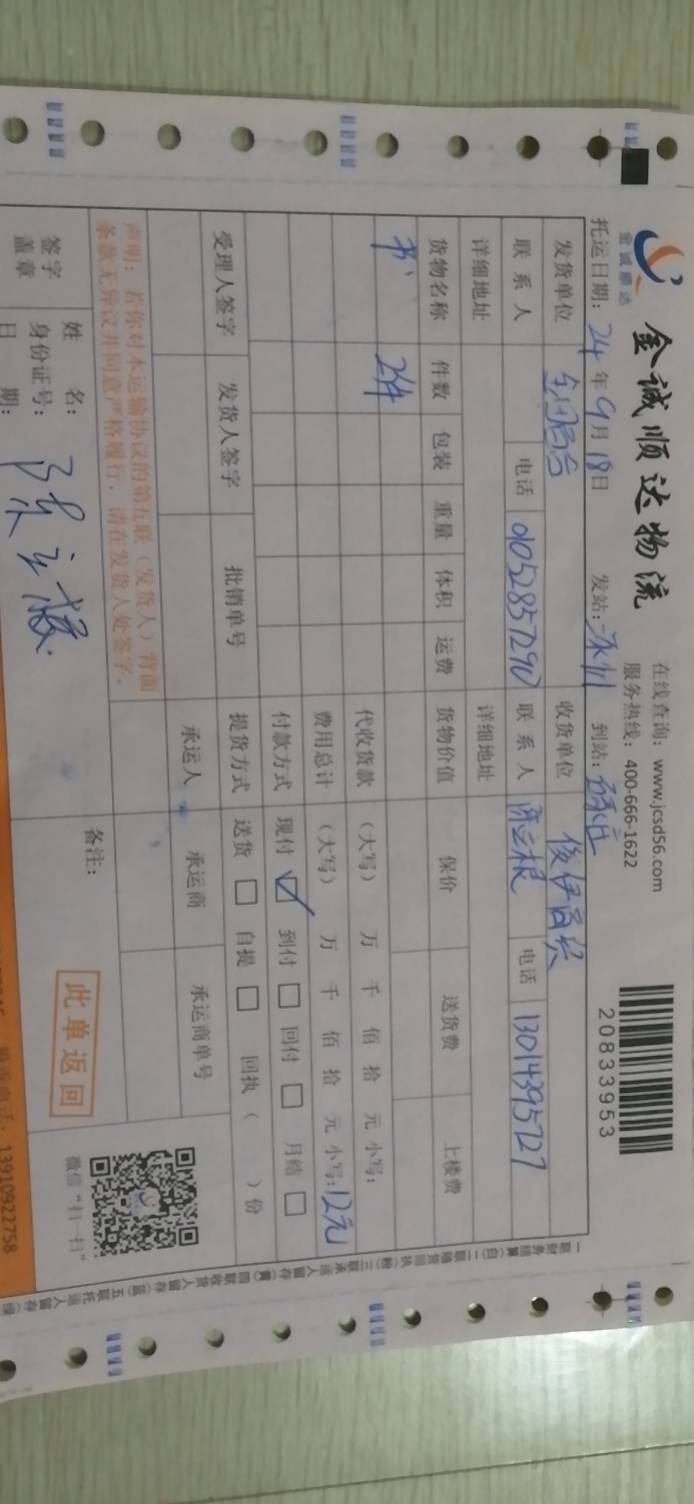 金诚顺达
金诚顺达物流
在线查询：www.jcsd56.com
服务热线：400-666-1622
20833953
托运日期：24年9月18日 发站： 到站：
发货单位 收货单位
联系人 电话 01052857290 联系人 陈立根 电话 13014395727
详细地址 详细地址
货物名称 件数 包装 重量 体积 运费 货物价值 保价 送货费 上楼费
书 2件
代收货款 （大写） 万 仟 佰 拾 元 小写：
费用总计 （大写） 万 仟 佰 拾 元 小写：12元
付款方式 现付 ☑ 到付 □ 回付 □ 月结 □
受理人签字 发货人签字 批销单号 提货方式 送货 □ 自提 □ 回执（ ）份
承运人 承运商 承运商单号
声明：若你对本运输协议的第五联（发货人）背面
条款无异议并同意严格履行，请在发货人处签字。
签字 盖章
姓 名：
身份证号：
日 期：
备注：
此单返回
微信“扫一扫”
一联财务结算(白) 二联随货回执(粉) 三联承运人留存(黄) 四联收货人留存(蓝) 五联托运人留存
13910922758